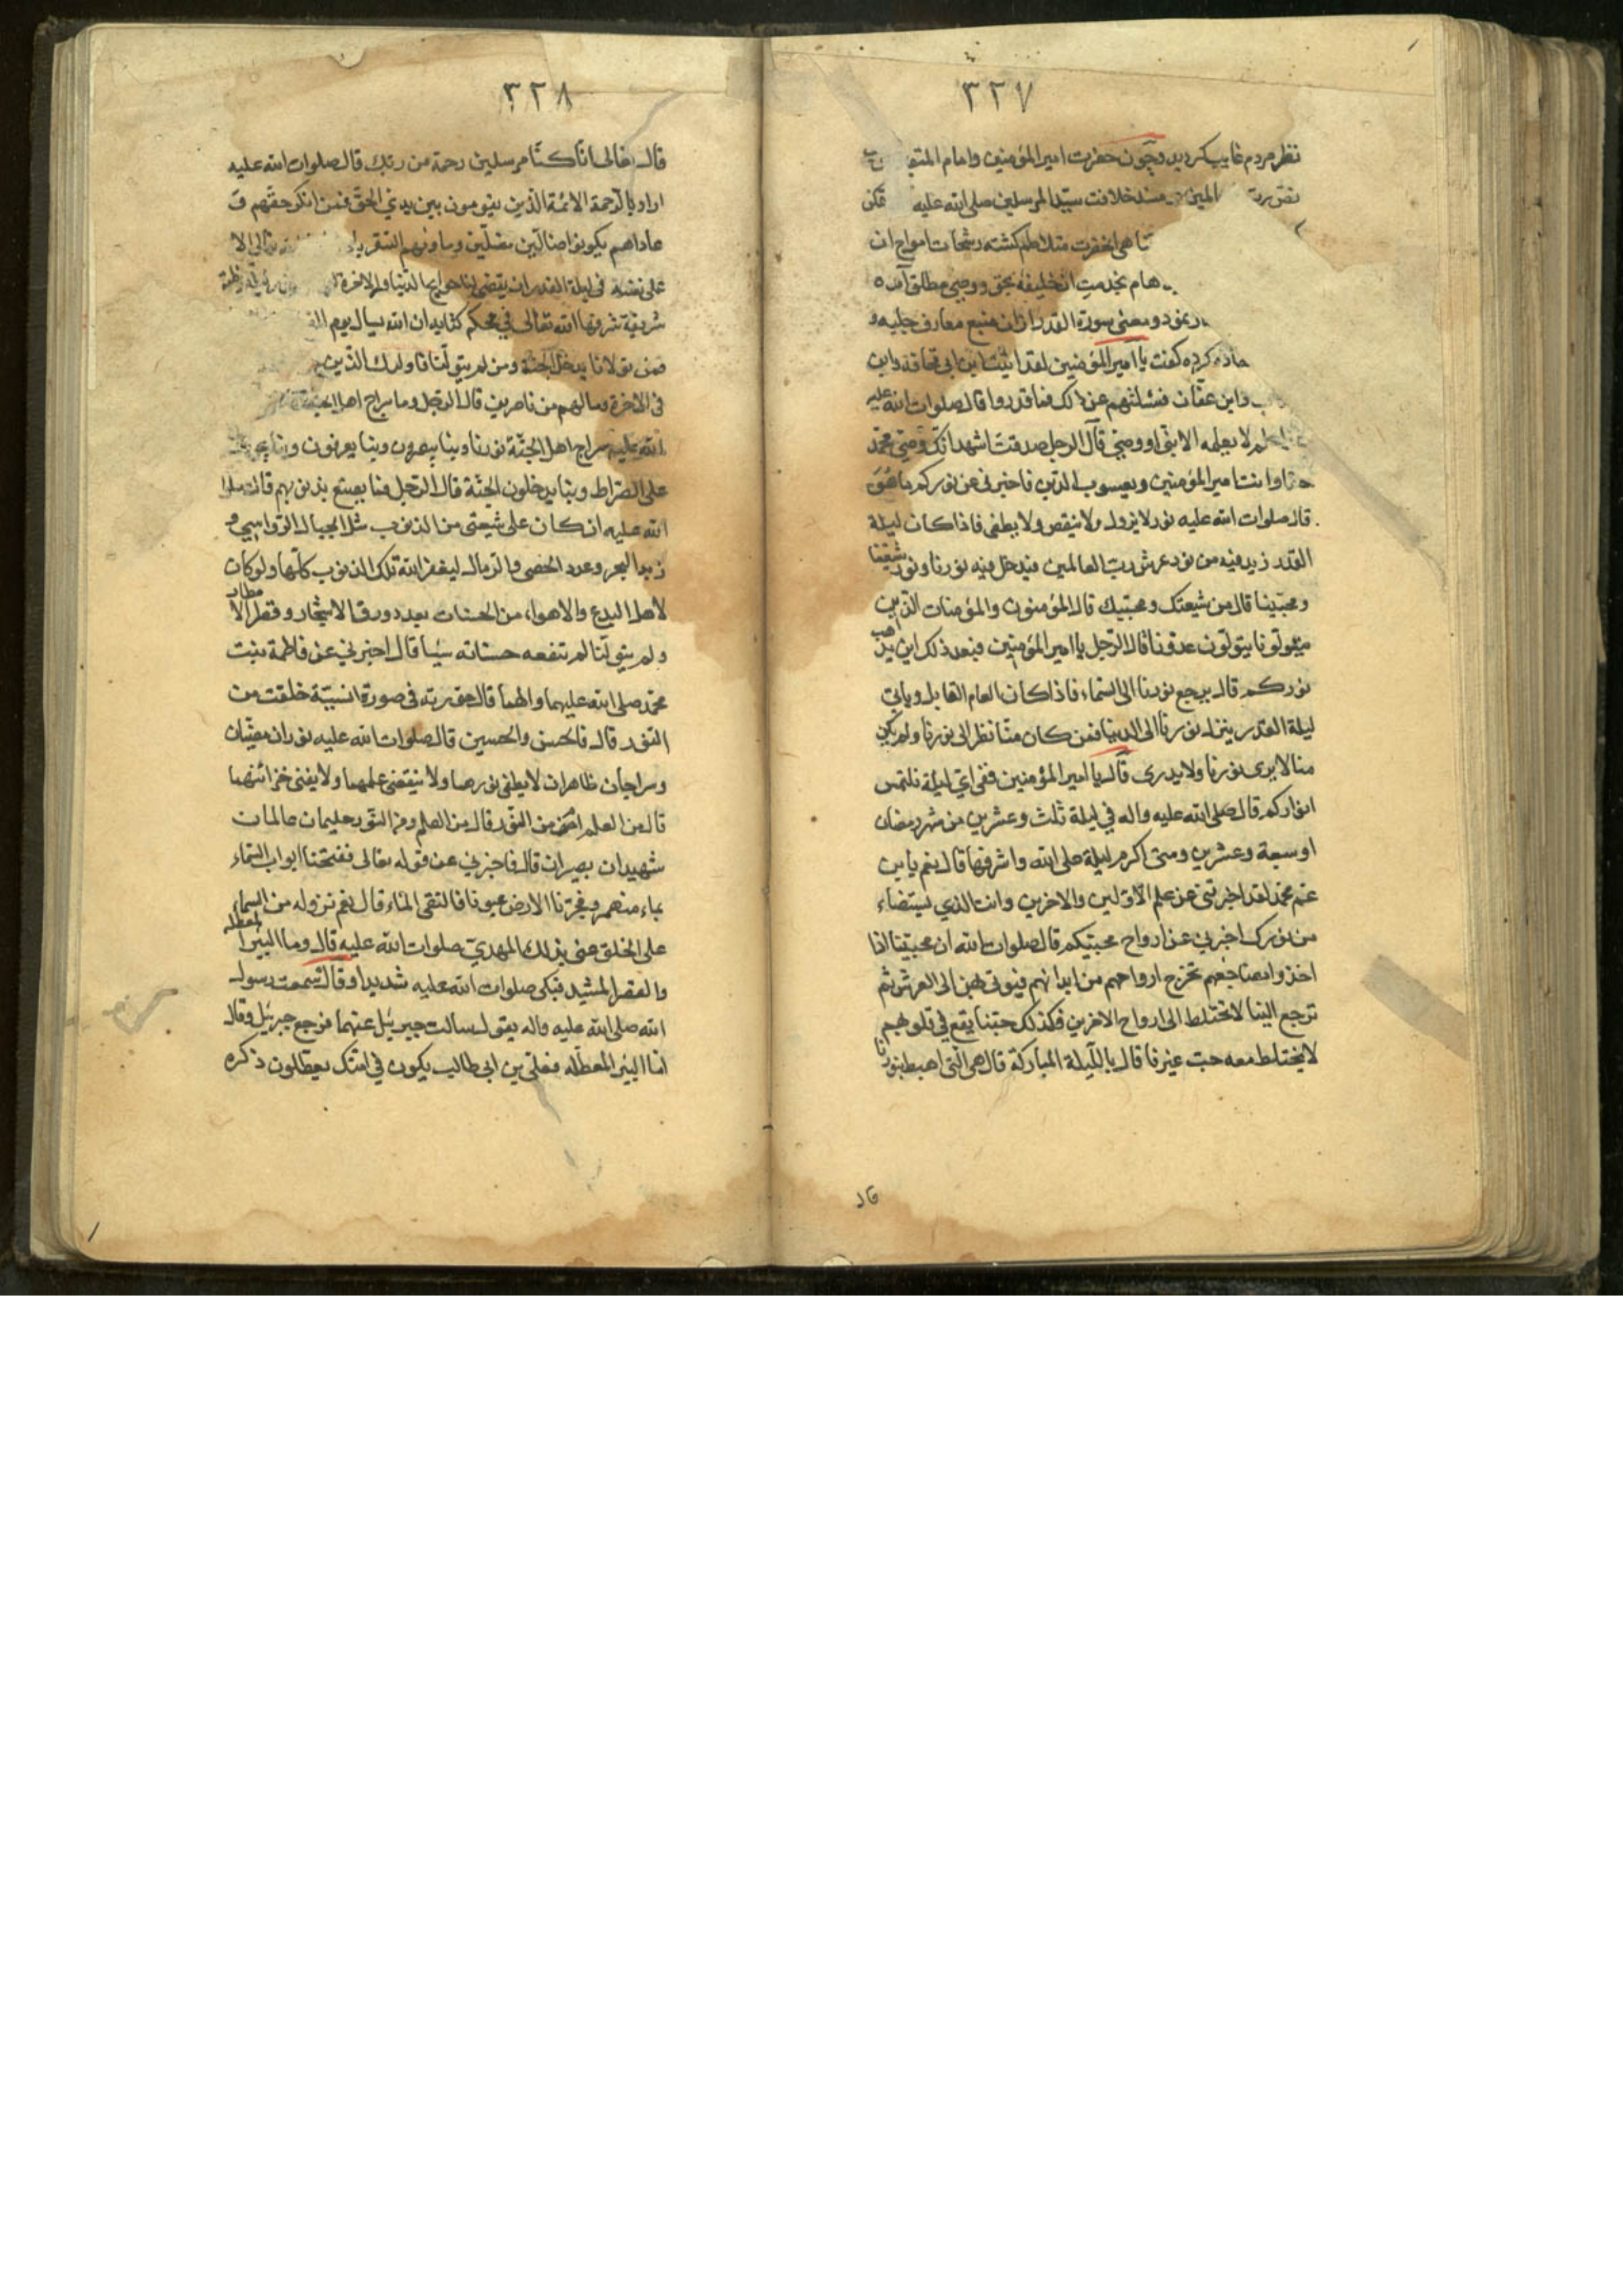 ٣٢٧
نظر مردم غایب کردید و چون حضرت امیر المؤمنین وامام المتق
المین مسند خلافت سید المرسلین صلی الله علیه
هی انحضرت متلاطم کشته رشحات امواج ان
هام بخدمت ان خلیفهٔ بحق و وصی مطلق آمده
ومعنی سورة القدر از ان منبع معارف جلیه و
کرده کفت یا امیر المؤمنین لقد اتیت ابن ابی قحافه وابن
وابن عفان فسئلتهم عن ذلک فما قدروا قال صلوات الله علیه
لا یعلمه الا نبی او وصی قال الرجل صدقت اشهد انک وصی محمد
وانت امیر المؤمنین ویعسوب الدین فاخبرنی عن نورکم ما هو
قال صلوات الله علیه نور لا یزول ولا ینقص ولا یطفی فاذا کان لیلة
القدر زید فیه من نور عرش رب العالمین فیدخل فیه نورنا ونور شیعتنا
ومحبینا قال من شیعتک ومحبیک قال المؤمنون والمؤمنات الذین
یتولونا یتولون عدونا قال الرجل یا امیر المؤمنین فبعد ذلک این یذهب
نورکم قال یرجع نورنا الی السماء فاذا کان العام القابل ویاتی
لیلة القدر ینزل نورنا الی الدنیا فمن کان منا نظر الی نورنا ولم یکن
منا لا یری نورنا ولا یدری قال یا امیر المؤمنین ففی ای لیلة نلتمس
انوارکم قال صلی الله علیه واله فی لیلة ثلث وعشرین من شهر رمضان
او سبعة وعشرین ومتی اکرم لیلة صلی الله واشرفها قال نعم یابن
عم محمد لقد اخبرتنی عن علم الاولین والاخرین وانت الذی یستضاء
من نورک اخبرنی عن ارواح محبیکم قال صلوات الله ان محبینا اذا
اخذوا مضاجعهم تخرج ارواحهم من ابدانهم فیوتی بهن الی العرش ثم
ترجع الینا لا تختلط الی ارواح الاخرین فکذلک حبنا یقع فی قلوبهم
لا یختلط معه حب غیرنا قال باللیلة المبارکة قال هی التی اهبط بنورنا
قال
٣٢٨
قال تعالی انا کنا مرسلین رحمة من ربک قال صلوات الله علیه
اراد بالرحمة الائمة الذین یقومون بین یدی الحق فمن انکر حقهم و
عاداهم یکونوا ضالین مضلین
علی نفسه فی لیلة القدر ان یقضی لنا حوایج الدنیا والاخرة
شریفة شرفها الله تعالی فی محکم کتابه ان الله یسال یوم
فمن تولانا یدخل الجنة ومن لم یتولنا فاولئک الذین
فی الاخرة ومالهم من ناصرین قال الرجل وما سراج اهل الجنة
الله علیه سراج اهل الجنة نورنا وبنا یبصرون وبنا یعرفون
علی الصراط وبنا یدخلون الجنة قال الرجل فما یصنع بذنوبهم قال صلوات
الله علیه ان کان علی شیعتی من الذنوب مثل الجبال الرواسی و
زبد البحر وعدد الحصی والرمال لیغفر الله تلک الذنوب کلها ولو کان
لاهل البدع والاهواء من الحسنات بعدد ورق الاشجار وقطر الامطار
ولم یتولنا لم تنفعه حسناته شیئا قال اخبرنی عن فاطمة بنت
محمد صلی الله علیهما والهما قال حوریة فی صورة انسیة خلقت من
النور قال فالحسن والحسین قال صلوات الله علیه نوران مضیئان
وسراجان ظاهران لا یطفی نورهما ولا ینقص علمهما ولا یفنی خزائنهما
قال من العلم ام من النور قال من العلم ومن النور حلیمان عالمان
شهیدان بصیران قال فاخبرنی عن قوله تعالی ففتحنا ابواب السماء
بماء منهمر وفجرنا الارض عیونا فالتقی الماء قال نعم نزوله من السماء
علی الخلق عنی بذلک المهدی صلوات الله علیه قال وما البئر المعطله
والقصر المشید فبکی صلوات الله علیه شدیدا وقال سمعت رسول
الله صلی الله علیه واله یقول سالت جبرئیل عنهما فرجع جبرئیل وقال
اما البئر المعطله فعلی بن ابی طالب یکون فی امتک یعطلون ذکره